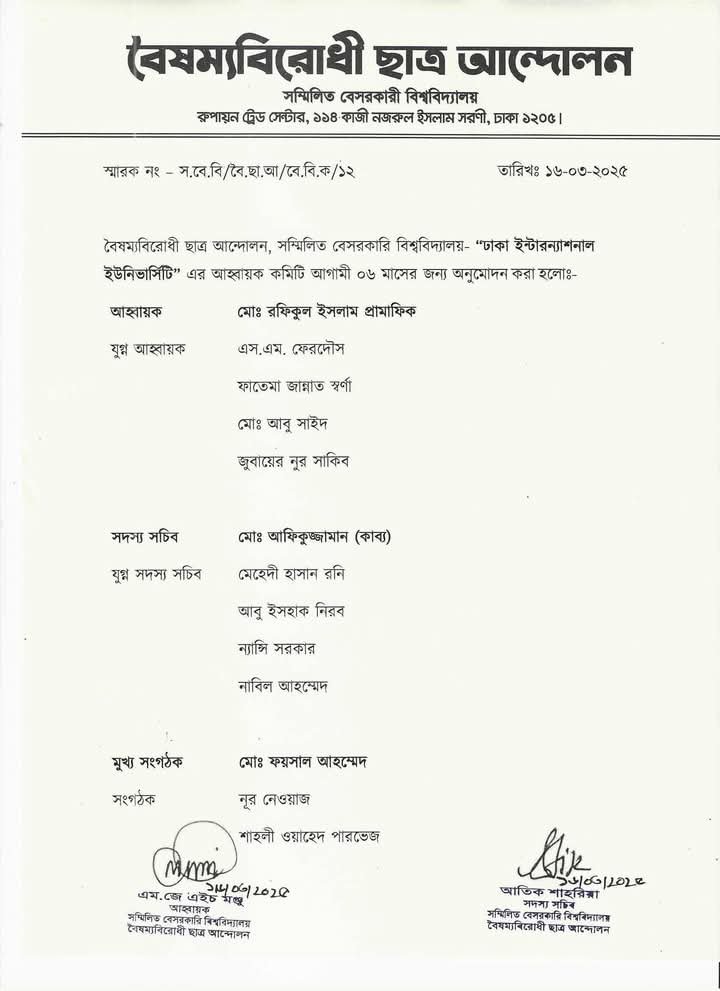 বৈষম্যবিরোধী ছাত্র আন্দোলন
সম্মিলিত বেসরকারী বিশ্ববিদ্যালয়
রুপায়ন ট্রেড সেন্টার, ১১৪ কাজী নজরুল ইসলাম সরণী, ঢাকা ১২০৫।
স্মারক নং – স.বে.বি/বৈ.ছা.আ/বে.বি.ক/১২ তারিখঃ ১৬-০৩-২০২৫
বৈষম্যবিরোধী ছাত্র আন্দোলন, সম্মিলিত বেসরকারি বিশ্ববিদ্যালয়- “ঢাকা ইন্টারন্যাশনাল
ইউনিভার্সিটি” এর আহ্বায়ক কমিটি আগামী ০৬ মাসের জন্য অনুমোদন করা হলোঃ-
আহ্বায়ক মোঃ রফিকুল ইসলাম প্রামাফিক
যুগ্ন আহ্বায়ক এস.এম. ফেরদৌস
ফাতেমা জান্নাত স্বর্ণা
মোঃ আবু সাইদ
জুবায়ের নুর সাকিব
সদস্য সচিব মোঃ আফিকুজ্জামান (কাব্য)
যুগ্ন সদস্য সচিব মেহেদী হাসান রনি
আবু ইসহাক নিরব
ন্যান্সি সরকার
নাবিল আহম্মেদ
মুখ্য সংগঠক মোঃ ফয়সাল আহম্মেদ
সংগঠক নূর নেওয়াজ
শাহলী ওয়াহেদ পারভেজ
১৬/০৩/২০২৫
এম.জে এইচ মঞ্জু
আহ্বায়ক
সম্মিলিত বেসরকারি বিশ্ববিদ্যালয়
বৈষম্যবিরোধী ছাত্র আন্দোলন
১৬/০৩/২০২৫
আতিক শাহরিয়া
সদস্য সচিব
সম্মিলিত বেসরকারি বিশ্ববিদ্যালয়
বৈষম্যবিরোধী ছাত্র আন্দোলন